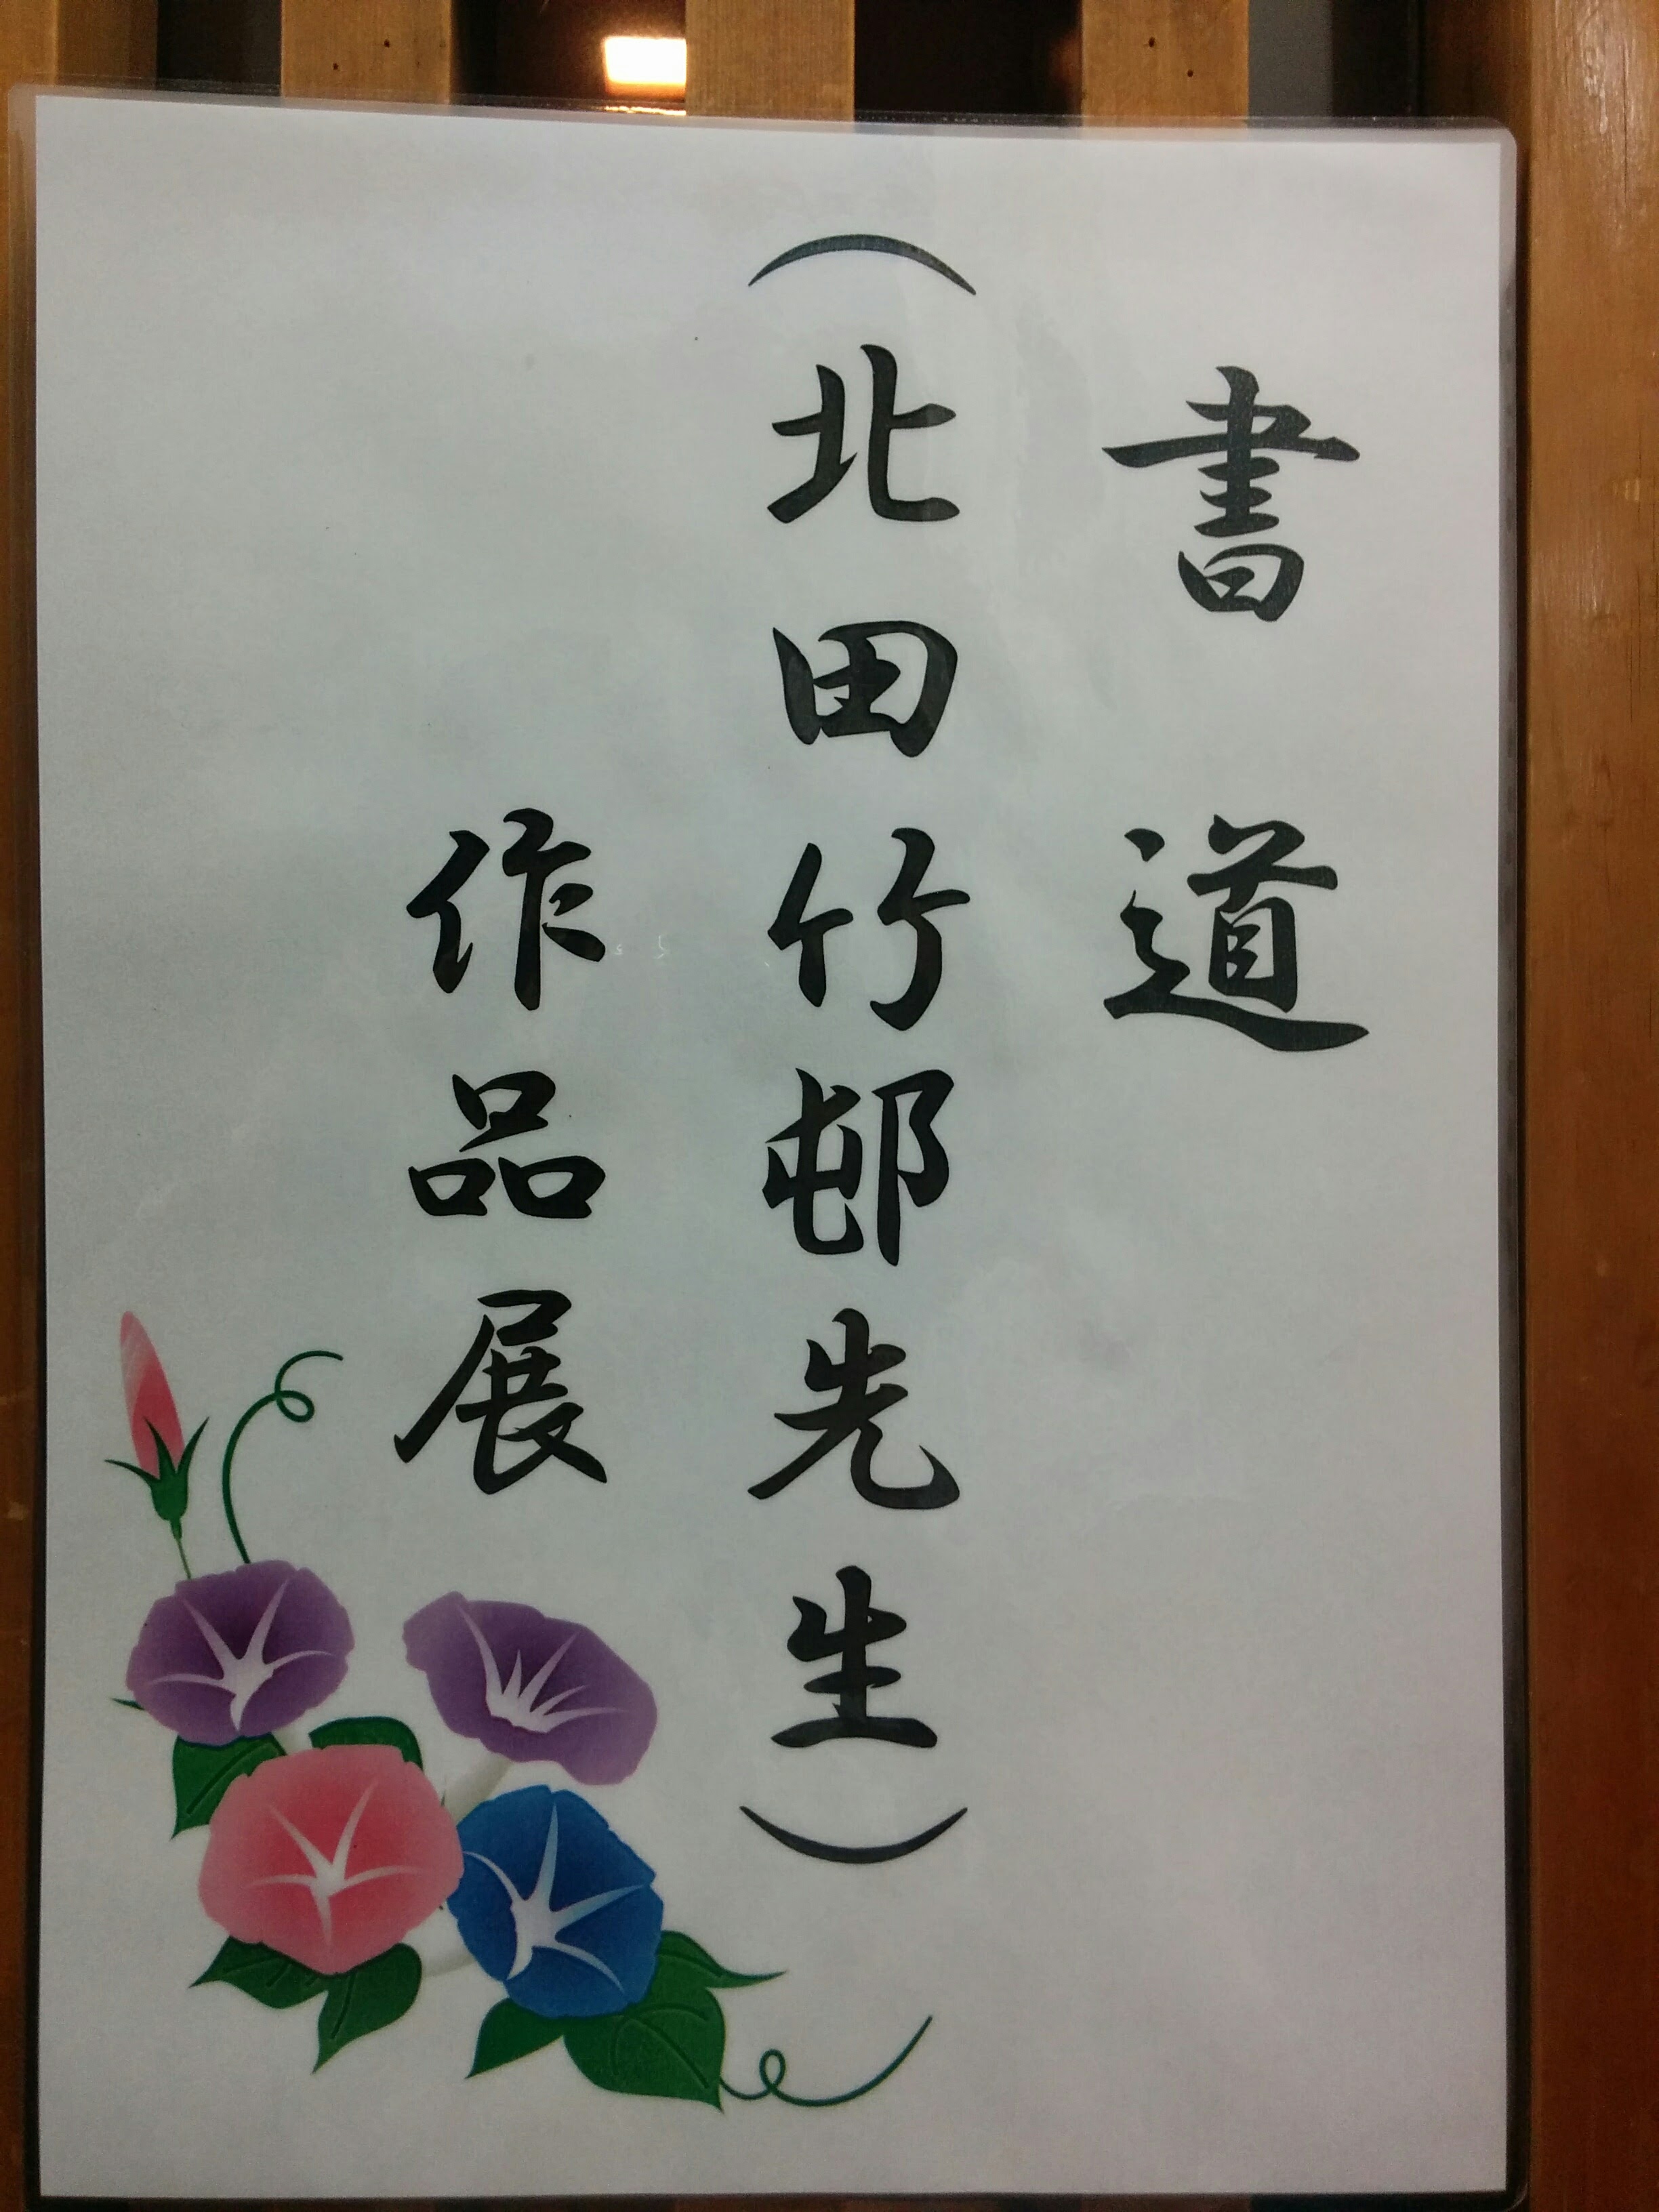 書道
（北田竹邨先生）
作品展